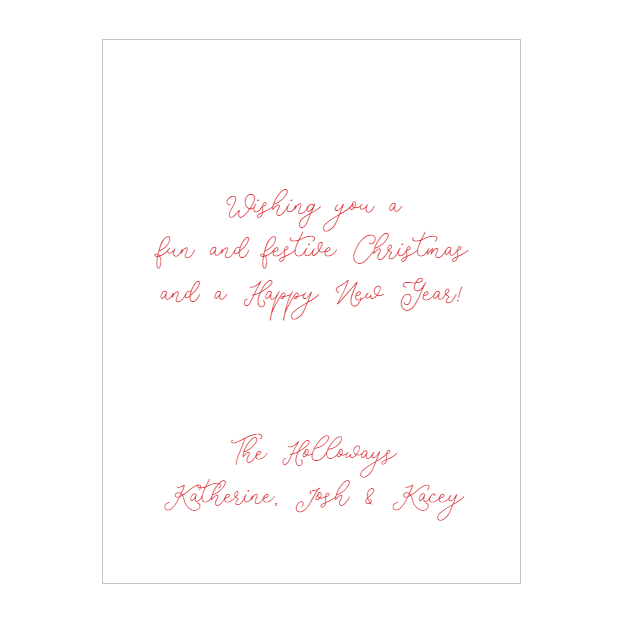 Wishing you a
fun and festive Christmas
and a Happy New Year!
The Holloways
Katherine, Josh & Kacey